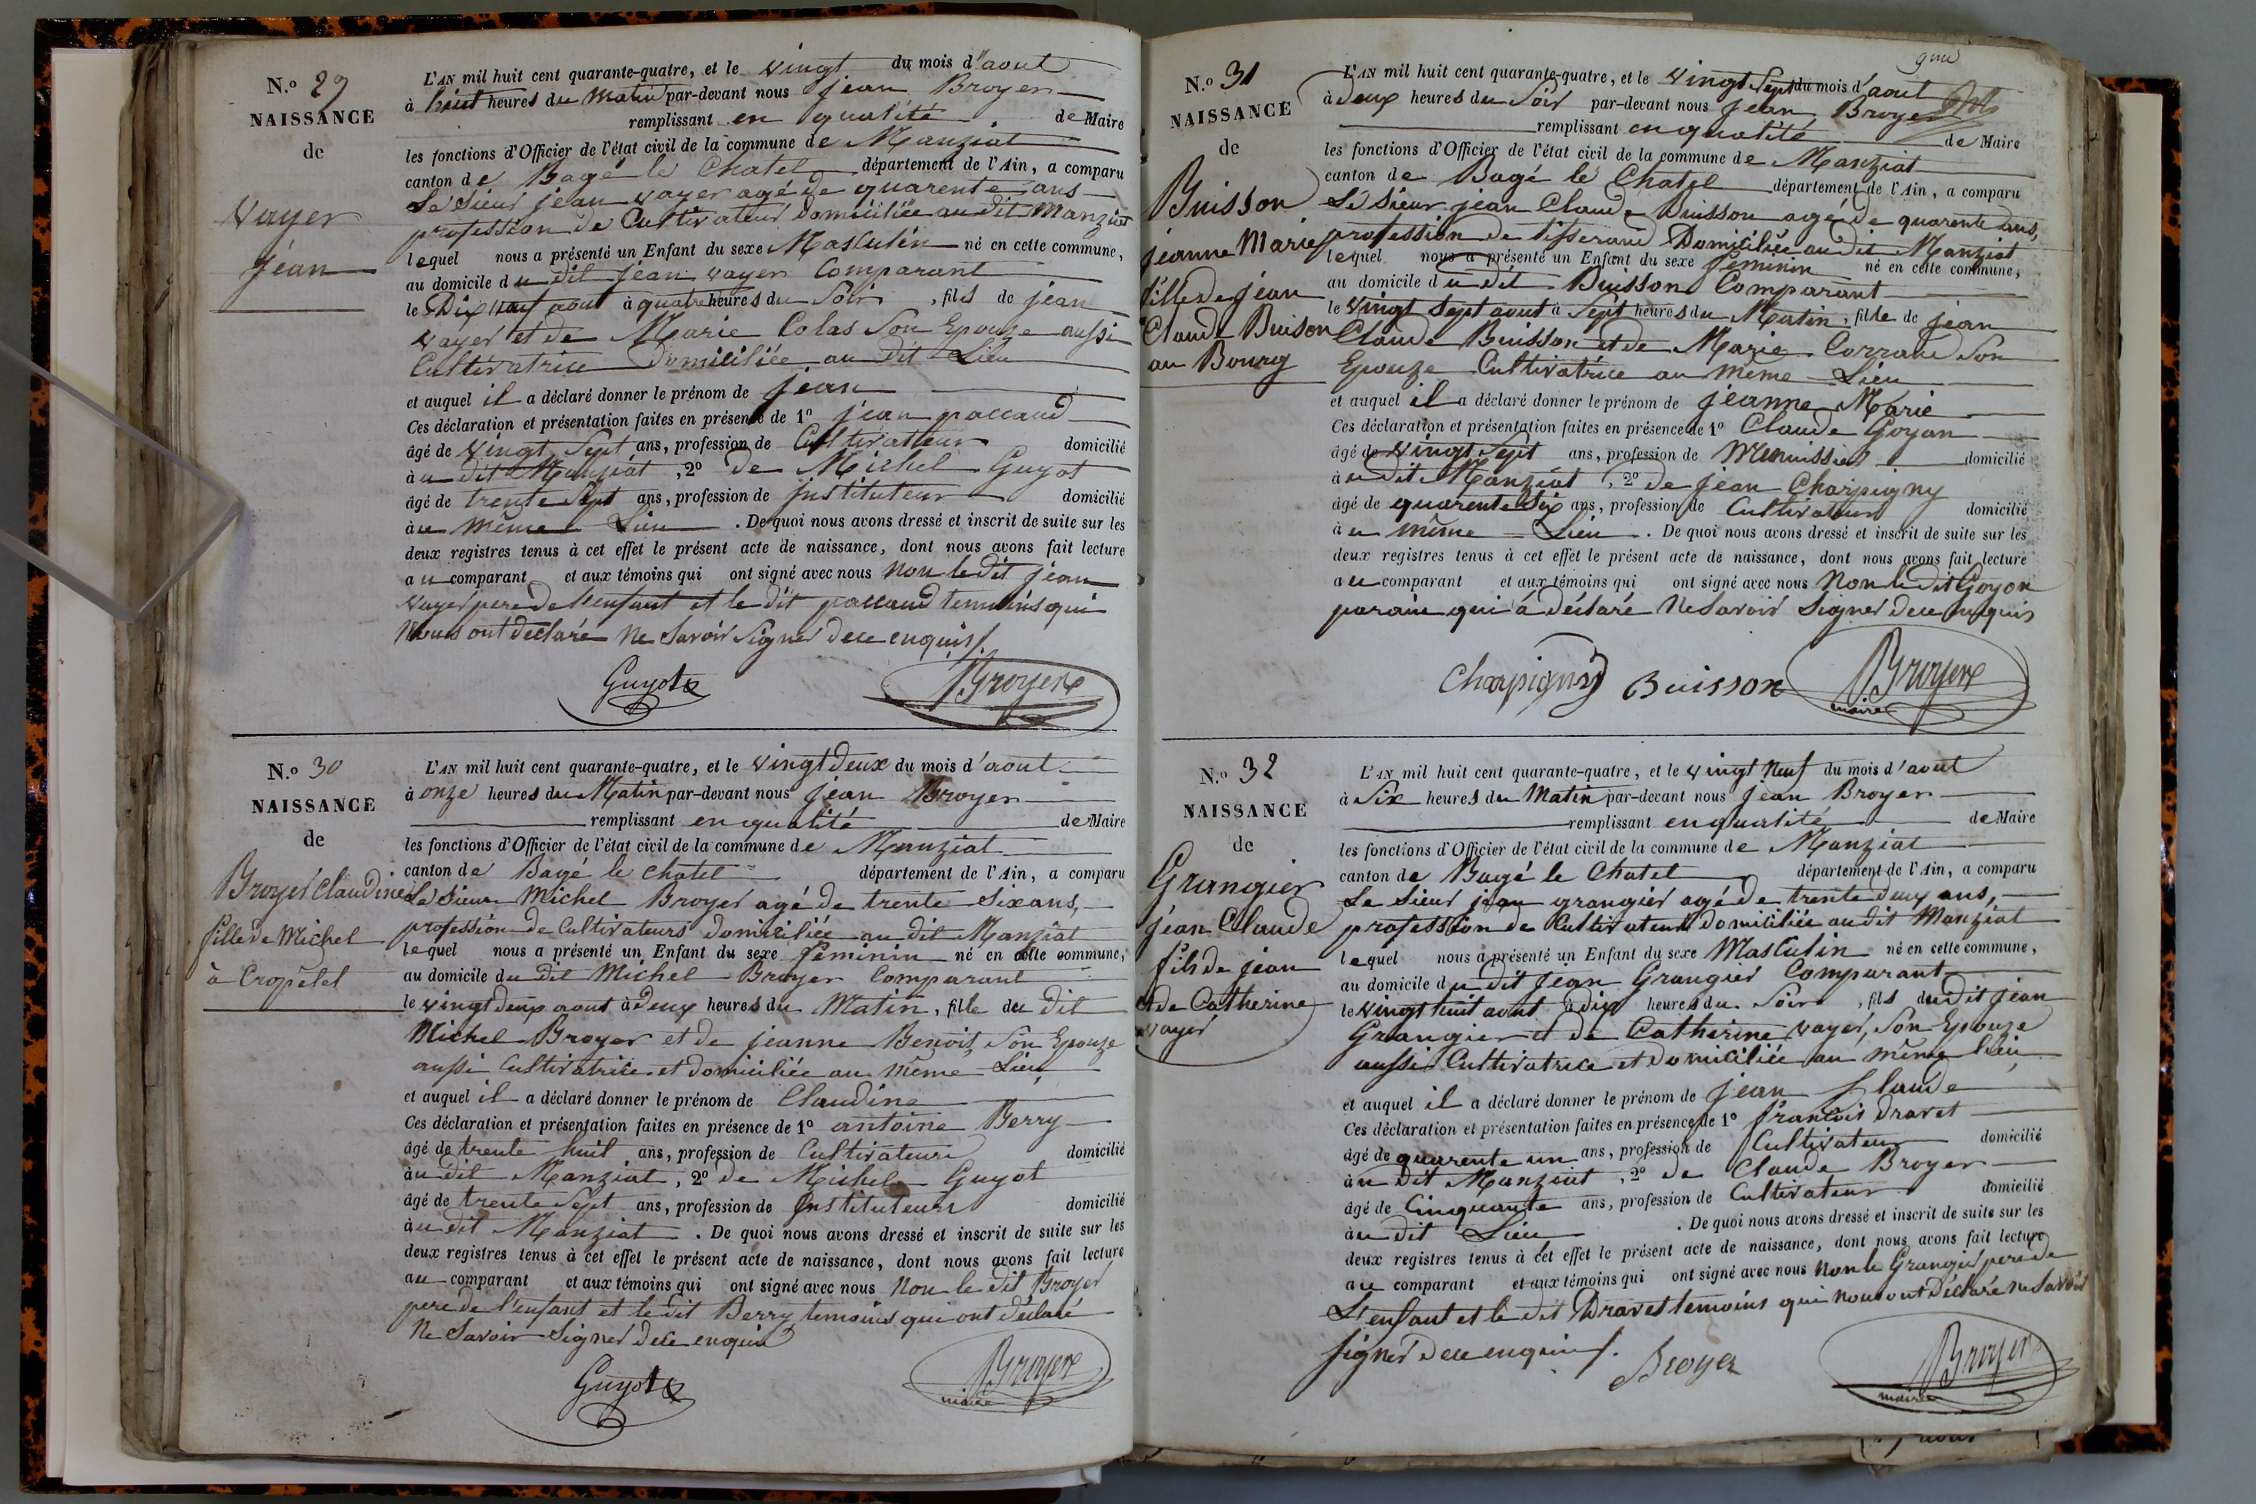 N.º 29
NAISSANCE
de
Vayer
jean
L'AN mil huit cent quarante-quatre, et le vingt du mois d'aout
à huit heures du matin par-devant nous jean Broyer
remplissant en qualité de Maire
les fonctions d'Officier de l'état civil de la commune de Manziat
canton de Bagé le Chatel département de l'Ain, a comparu
Le Sieur jean vayer agé de quarente ans
profession de Cultivateur domiciliée au dit Manziat
lequel nous a présenté un Enfant du sexe Masculin né en cette commune,
au domicile du dit jean vayer Comparant
le Dix neuf aout à quatre heures du Soir, fils de jean
vayer et de Marie Colas Son Epouze aussi
Cultivatrice domiciliée au dit Lieu
et auquel il a déclaré donner le prénom de jean
Ces déclaration et présentation faites en présence de 1º jean paccaud
âgé de vingt Sept ans, profession de Cultivateur domicilié
à u dit Manziat, 2º de Michel Guyot
âgé de trente Sept ans, profession de jnstituteur domicilié
à u même Lieu. De quoi nous avons dressé et inscrit de suite sur les
deux registres tenus à cet effet le présent acte de naissance, dont nous avons fait lecture
au comparant et aux témoins qui ont signé avec nous Non le dit jean
vayer pere de l'enfant et le dit paccaud temoins qui
Nous ont declaré ne Savoir Signer de ce enquis
Guyot Broyer
N.º 30
NAISSANCE
de
Broyer Claudine
fille de Michel
à Cropétet
L'AN mil huit cent quarante-quatre, et le vingt deux du mois d'aout
à onze heures du Matin par-devant nous jean Broyer
remplissant en qualité de Maire
les fonctions d'Officier de l'état civil de la commune de Manziat
canton de Bagé le chatel département de l'Ain, a comparu
Le Sieur Michel Broyer agé de trente Six ans,
profession de Cultivateurs domiciliée au dit Manziat
lequel nous a présenté un Enfant du sexe féminin né en cette commune,
au domicile du dit Michel Broyer Comparant
le vingt deux aout à deux heures du Matin, fille du dit
Michel Broyer et de jeanne Benoit Son Epouze
aussi Cultivatrice et domiciliée au même Lieu
et auquel il a déclaré donner le prénom de Claudine
Ces déclaration et présentation faites en présence de 1º antoine Berry
âgé de trente huit ans, profession de Cultivateur domicilié
à u dit Manziat, 2º de Michel Guyot
âgé de trente Sept ans, profession de jnstituteur domicilié
à u dit Manziat. De quoi nous avons dressé et inscrit de suite sur les
deux registres tenus à cet effet le présent acte de naissance, dont nous avons fait lecture
au comparant et aux témoins qui ont signé avec nous Non le dit Broyer
pere de l'enfant et le dit Berry temoins qui ont déclaré
Ne Savoir Signer de ce enquis
Guyot Broyer
maire
N.º 31
NAISSANCE
de
Buisson
jeanne Marie
fille de jean
Claude Buison
au Bourg
L'AN mil huit cent quarante-quatre, et le vingt Sept du mois d'aout
à deux heures du Soir par-devant nous jean Broyer
remplissant en qualité de Maire
les fonctions d'Officier de l'état civil de la commune de Manziat
canton de Bagé le Chatel département de l'Ain, a comparu
Le Sieur jean Claude Buisson agé de quarente ans,
profession de tisserand Domiciliée au dit Manziat
lequel nous a présenté un Enfant du sexe féminin né en cette commune,
au domicile du dit Buisson Comparant
le vingt Sept aout à Sept heures du Matin, fille de jean
Claude Buisson et de Marie Corrand Son
Epouze Cultivatrice au même Lieu
et auquel il a déclaré donner le prénom de jeanne Marie
Ces déclaration et présentation faites en présence de 1º Claude Goyon
âgé de vingt Sept ans, profession de Menuissier domicilié
à u dit Manziat, 2º de jean Charpigny
âgé de quarente Six ans, profession de Cultivateur domicilié
à u même Lieu. De quoi nous avons dressé et inscrit de suite sur les
deux registres tenus à cet effet le présent acte de naissance, dont nous avons fait lecture
au comparant et aux témoins qui ont signé avec nous Non le dit Goyon
parain qui à déclaré Ne Savoir Signer de ce enquis
Charpigny Buisson Broyer
maire
N.º 32
NAISSANCE
de
Grangier
jean Claude
fils de jean
et de Catherine
vayer
L'AN mil huit cent quarante-quatre, et le vingt Neuf du mois d'aout
à Six heures du Matin par-devant nous jean Broyer
remplissant en qualité de Maire
les fonctions d'Officier de l'état civil de la commune de Manziat
canton de Bagé le Chatel département de l'Ain, a comparu
Le Sieur jean grangier agé de trente deux ans,
profession de Cultivateur domiciliée au dit Manziat
lequel nous a présenté un Enfant du sexe Masculin né en cette commune,
au domicile du dit jean Grangier Comparant
le vingt huit aout à dix heures du Soir, fils du dit jean
Grangier et de Catherine vayer, Son Epouze
aussi Cultivatrice et domiciliée au même lieu
et auquel il a déclaré donner le prénom de jean Claude
Ces déclaration et présentation faites en présence de 1º francois Dravet
âgé de quarente un ans, profession de Cultivateur domicilié
à u dit Manziat, 2º de Claude Broyer
âgé de Cinquante ans, profession de Cultivateur domicilié
à u dit Lieu. De quoi nous avons dressé et inscrit de suite sur les
deux registres tenus à cet effet le présent acte de naissance, dont nous avons fait lecture
au comparant et aux témoins qui ont signé avec nous Non le Grangier pere de
L'enfant et le dit Dravet temoins qui nous ont déclaré ne Savoir
Signer de ce enquis.
Broyer Broyer
maire